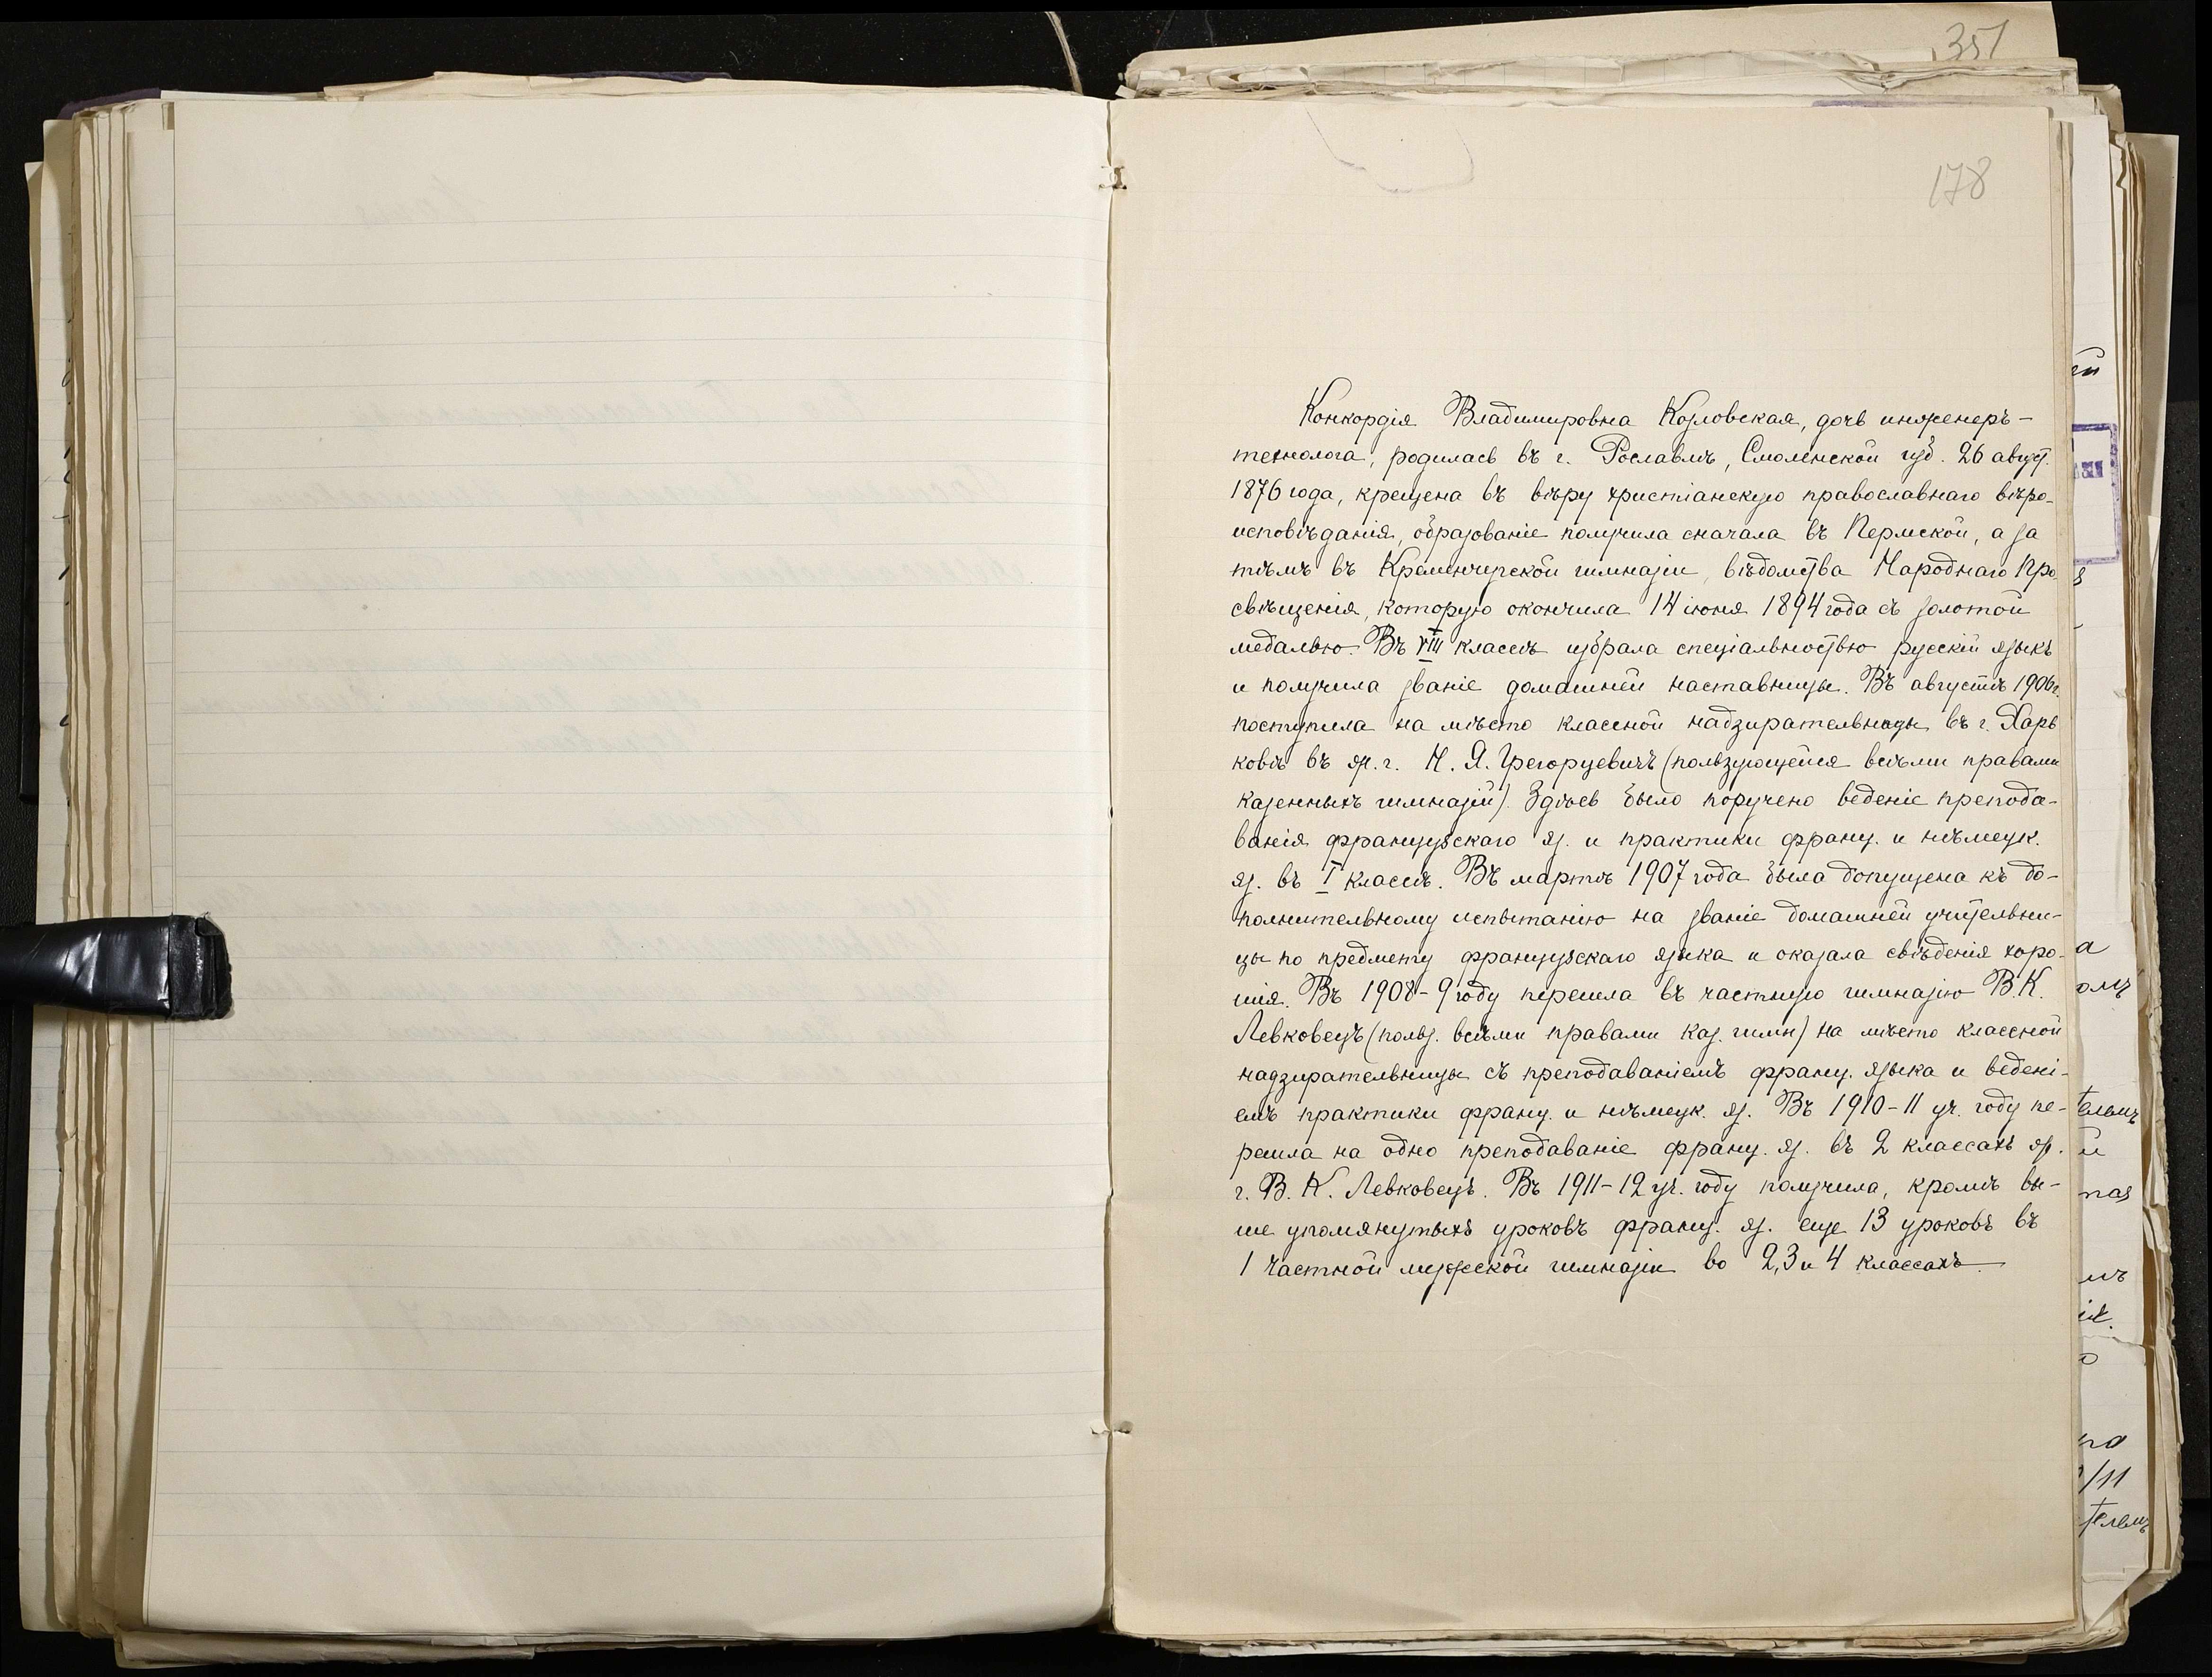 351
178
Конкордія Владимировна Козловская, дочь инженеръ-
технолога, родилась въ г. Рославлѣ, Смоленской губ. 26 август.
1876 года, крещена въ вѣру христіанскую православнаго вѣро-
исповѣданія, образованіе получила сначала въ Пермской, а за
тѣмъ въ Кременчугской гимназіи, вѣдомства Народнаго Про
свѣщенія, которую окончила 14 іюня 1894 года съ золотой
медалью. Въ VIII классѣ избрала спеціальностью русскій языкъ
и получила званіе домашней наставницы. Въ августѣ 1906 г.
поступила на мѣсто классной надзирательницы въ г. Харь
ковѣ въ ж. г. Н. Я. Григорцевичъ (пользующейся всѣми правами
казенныхъ гимназій). Здѣсь было поручено веденіе препода-
ванія французскаго яз. и практики франц. и нѣмецк.
яз. въ I классѣ. Въ мартѣ 1907 года была допущена къ до-
полнительному испытанію на званіе домашней учительни-
цы по предмету французскаго языка и оказала свѣденія хоро-
шія. Въ 1908-9 году перешла въ частную гимназію В. К.
Левковецъ (польз. всѣми правами каз. гимн) на мѣсто классной
надзирательницы съ преподаваніемъ франц. языка и веденi-
емъ практики франц. и нѣмецк. яз. Въ 1910-11 уч. году пе-
решла на одно преподаваніе франц. яз. въ 2 классахъ ж.
г. В. К. Левковецъ. Въ 1911-12 уч. году получила, кромѣ вы-
ше упомянутыхъ уроковъ франц. яз. еще 13 уроковъ въ
1 частной мужской гимназіи во 2, 3 и 4 классахъ.